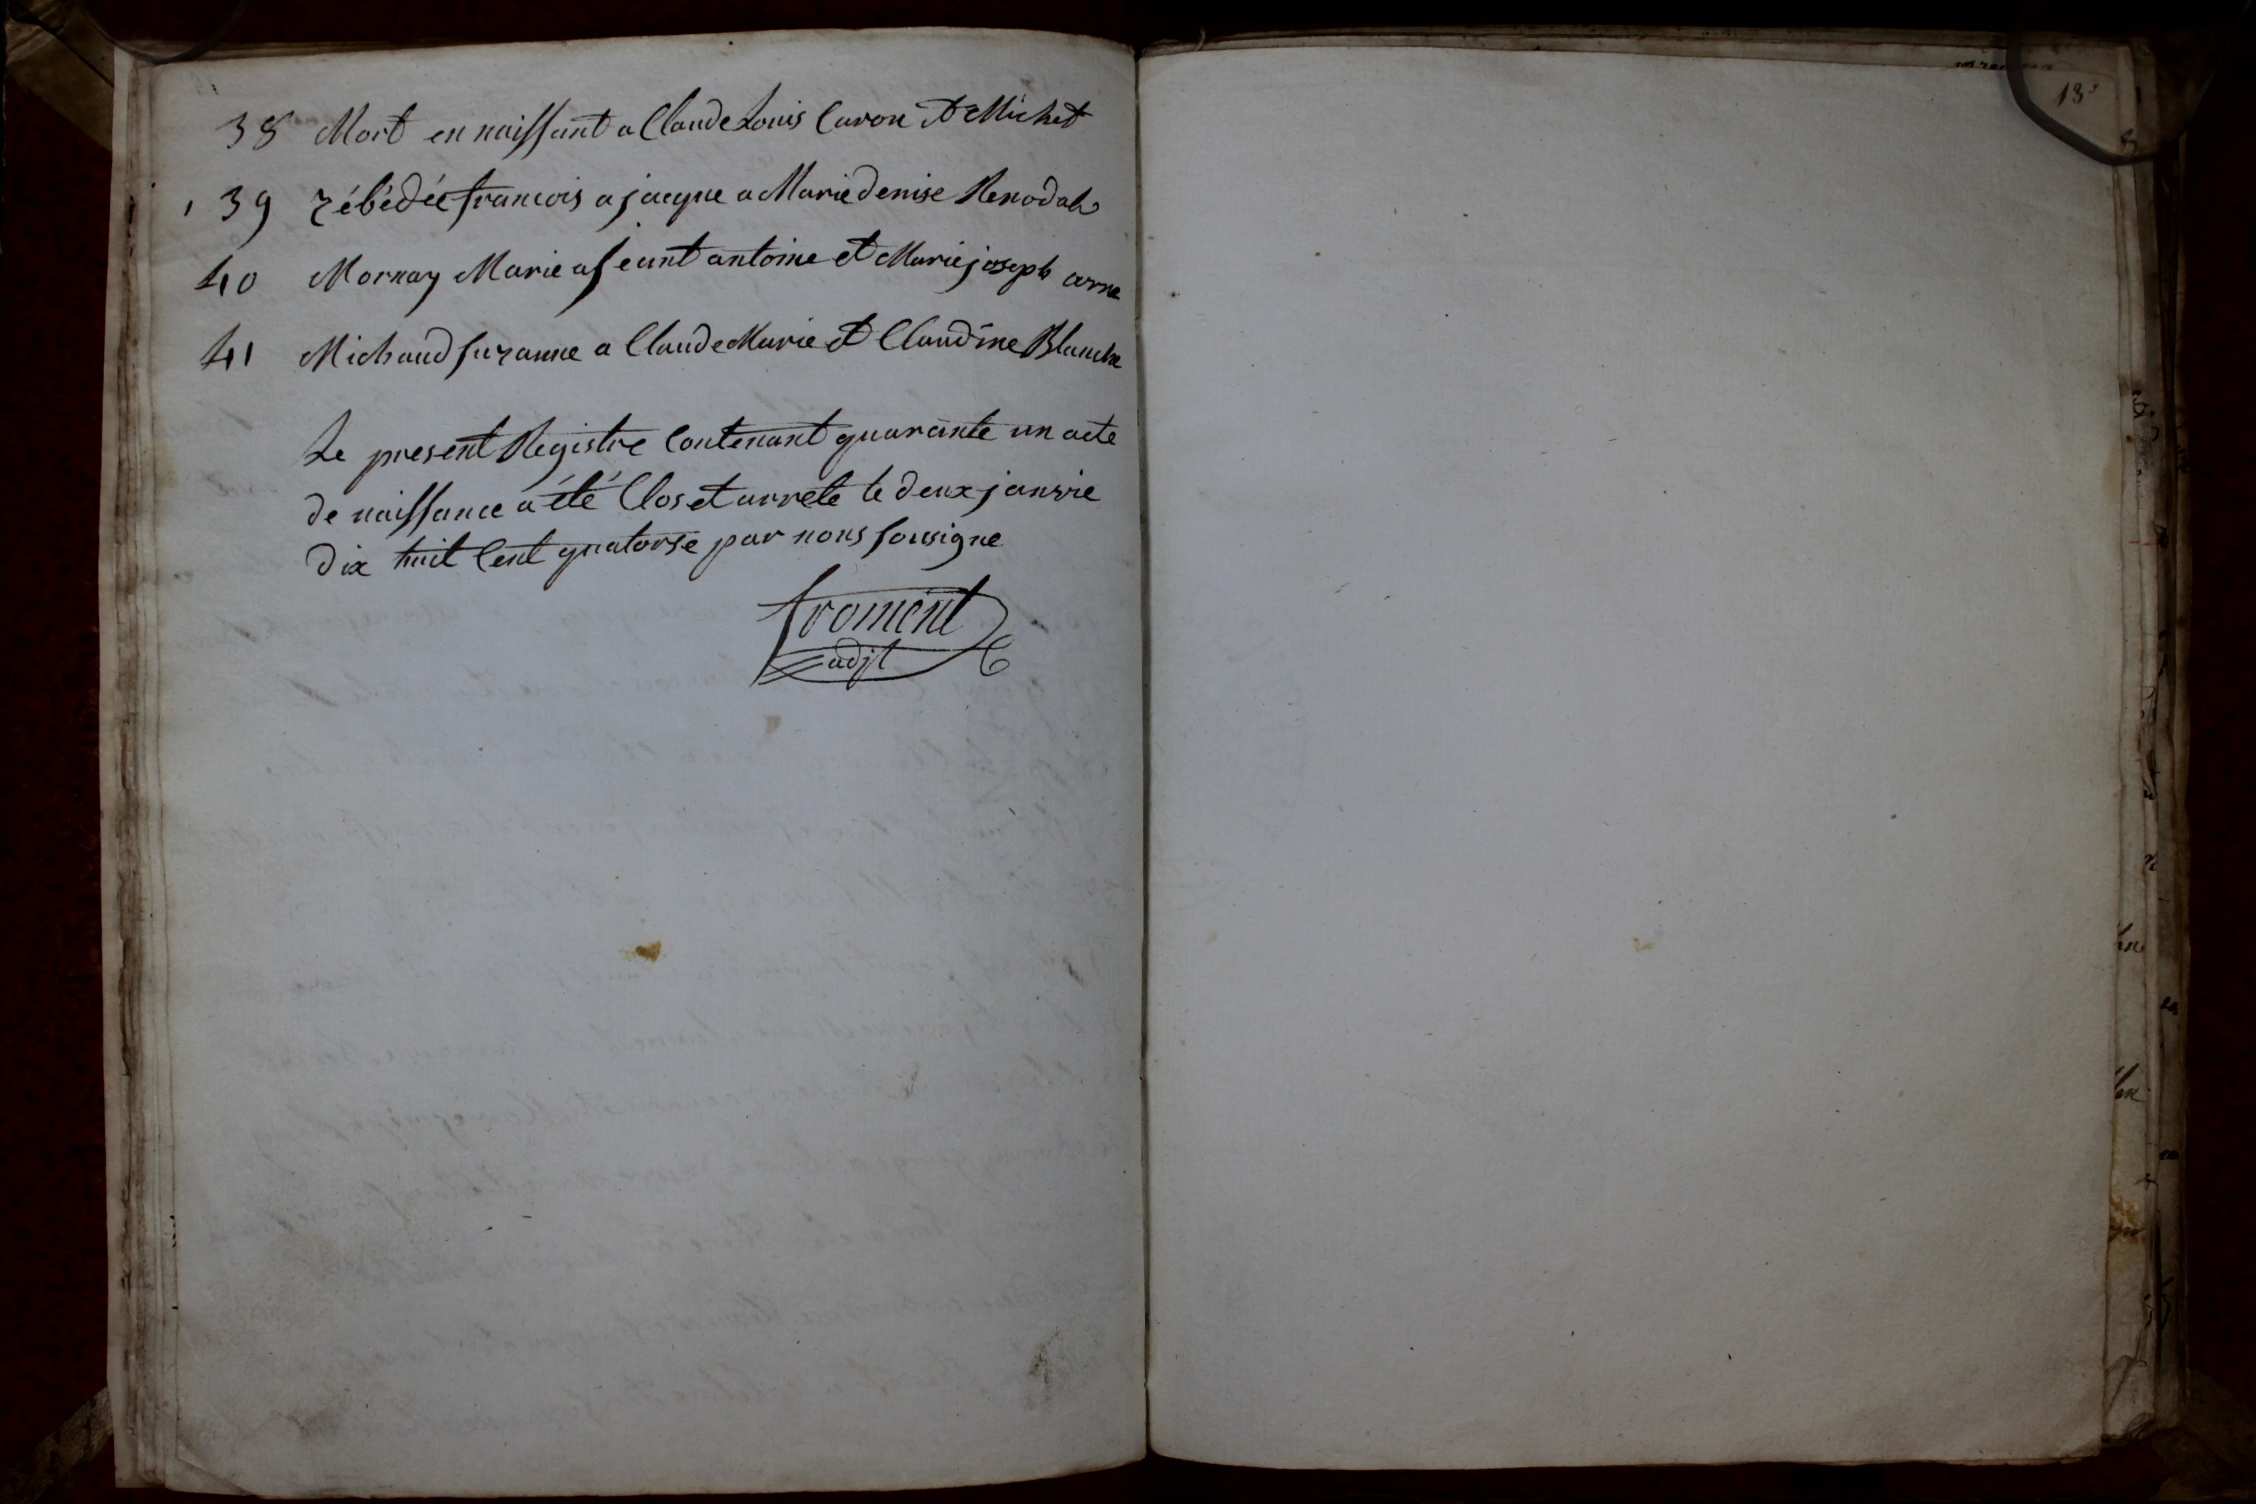 38 Mort en naissant a Claude Louis Caron et Michet
39 zébédée francois a jacque a Marie denise Renodah
40 Mornay Marie a jeant antoine et Marie joseph
41 Michaud suzanne a Claude Marie et Claudine Blanche
Le present Registre Contenant quarante un acte
de naissance a été Clos et arrete le deux janvie
dix huit Cent quatorse par nous sousigne
froment
adjt
13